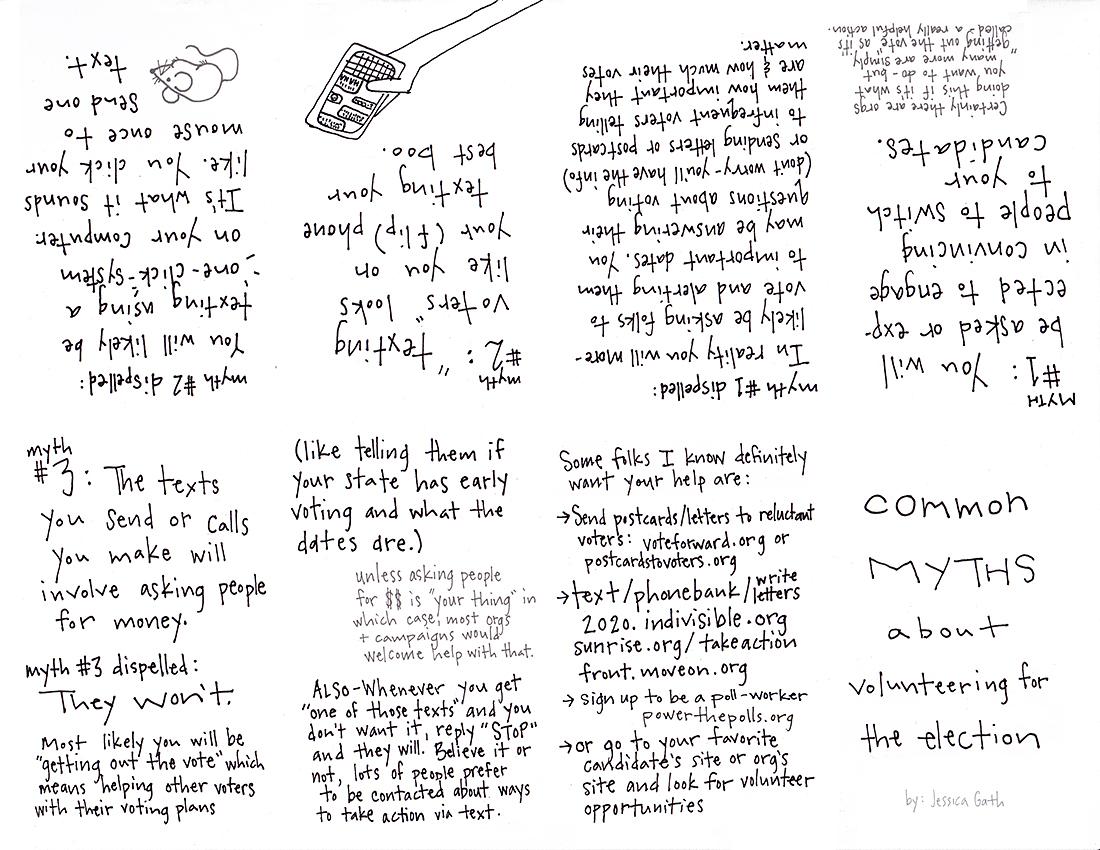 common
MYTHS
about
volunteering for
the election
by: Jessica Gath
MYTH
#1: You will
be asked or exp-
ected to engage
in convincing
people to switch
to your
candidates.
Certainly there are orgs
doing this if it's what
you want to do - but
many more are "simply
"getting out the vote" as it's
called - a really helpful action.
myth #1 dispelled:
In reality you will more-
likely be asking folks to
vote and alerting them
to important dates. You
may be answering their
questions about voting
(don't worry-you'll have the info)
or sending letters or postcards
to infrequent voters telling
them how important they
are & how much their votes
matter.
myth
#2: "texting
voters" looks
like you on
your (flip) phone
texting your
best boo.
myth #2 dispelled:
You will likely be
texting using a
"one-click-system"
on your computer.
It's what it sounds
like. You click your
mouse once to
send one
text.
myth
#3: The texts
you send or calls
you make will
involve asking people
for money.
myth #3 dispelled:
They won't.
Most likely you will be
"getting out the vote" which
means helping other voters
with their voting plans
(like telling them if
your state has early
voting and what the
dates are.)
unless asking people
for $$ is "your thing" in
which case, most orgs
+ campaigns would
welcome help with that.
ALSO-Whenever you get
"one of those texts" and you
don't want it, reply "STOP"
and they will. Believe it or
not, lots of people prefer
to be contacted about ways
to take action via text.
Some folks I know definitely
want your help are:
→ Send postcards/letters to reluctant
voters: voteforward.org or
postcardstovoters.org
→ text/phonebank/write letters
2020.indivisible.org
sunrise.org/takeaction
front.moveon.org
→ Sign up to be a poll-worker
powerthepolls.org
→ or go to your favorite
candidate's site or org's
site and look for volunteer
opportunities